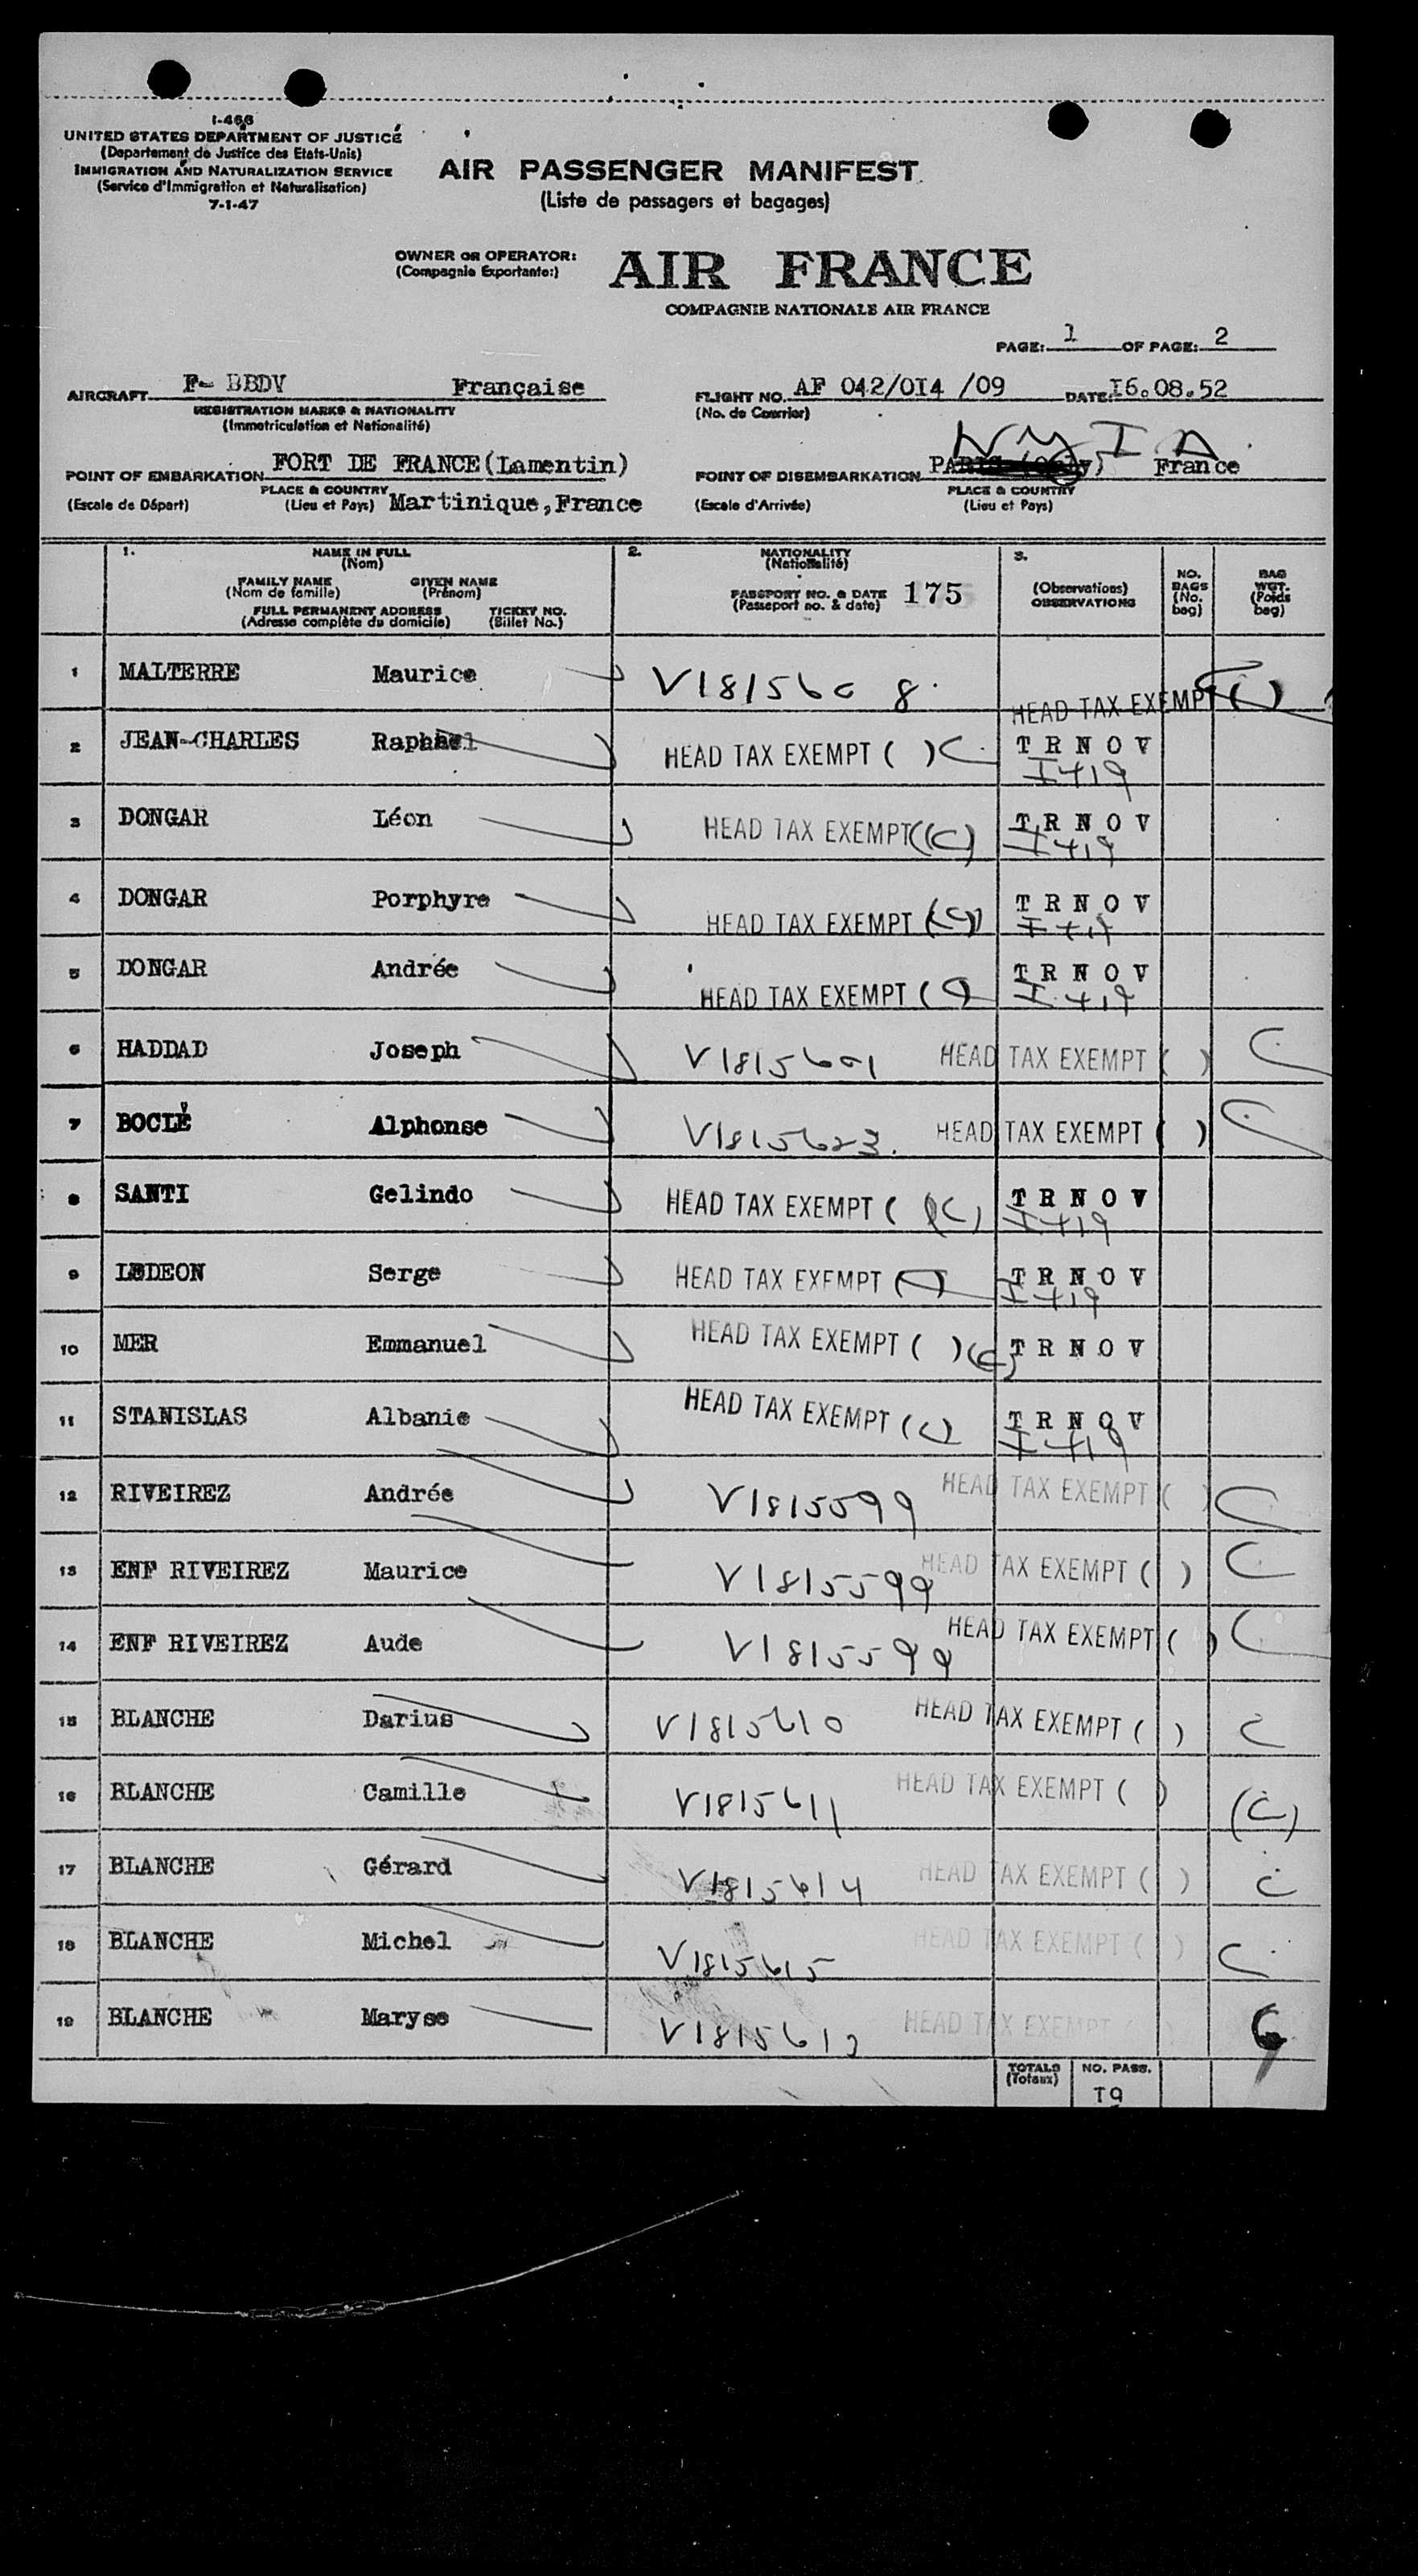 I-466
UNITED STATES DEPARTMENT OF JUSTICE
(Departement de Justice des Etats-Unis)
IMMIGRATION AND NATURALIZATION SERVICE
(Service d'Immigration et Naturalisation)
7-1-47
AIR PASSENGER MANIFEST
(Liste de passagers et bagages)
OWNER OR OPERATOR:
(Compagnie Exportante:)
AIR FRANCE
COMPAGNIE NATIONALE AIR FRANCE
PAGE: 1 OF PAGE: 2
AIRCRAFT F- BBDV Française
REGISTRATION MARKS & NATIONALITY
(Immatriculation et Nationalité)
FLIGHT NO. AF 042/0I4 /09 DATE: I6.08.52
(No. de Courrier)
N Y I A
POINT OF EMBARKATION FORT DE FRANCE (Lamentin)
PLACE & COUNTRY
(Escale de Départ) (Lieu et Pays) Martinique, France
POINT OF DISEMBARKATION PARIS (Orly) France
PLACE & COUNTRY
(Escale d'Arrivée) (Lieu et Pays)
1. NAME IN FULL
(Nom)
FAMILY NAME GIVEN NAME
(Nom de famille) (Prénom)
FULL PERMANENT ADDRESS TICKET NO.
(Adresse complète du domicile) (Billet No.)
2. NATIONALITY
(Nationalité)
PASSPORT NO. & DATE 175
(Passeport no. & date)
3.
(Observations)
OBSERVATIONS
NO. BAGS (No. bag)
BAG WGT. (Poids bag)
1 MALTERRE Maurice V1815608 HEAD TAX EXEMPT ( )
2 JEAN-CHARLES Raphael HEAD TAX EXEMPT ( ) C T R N O V
I 419
3 DONGAR Léon HEAD TAX EXEMPT (C) T R N O V
I 419
4 DONGAR Porphyre HEAD TAX EXEMPT (C) T R N O V
I 419
5 DONGAR Andrée HEAD TAX EXEMPT (C) T R N O V
I 419
6 HADDAD Joseph V1815601 HEAD TAX EXEMPT ( ) C
7 BOCLÉ Alphonse V1815623 HEAD TAX EXEMPT ( ) C
8 SANTI Gelindo HEAD TAX EXEMPT (C) T R N O V
I 419
9 LEDEON Serge HEAD TAX EXEMPT (C) T R N O V
I 419
10 MER Emmanuel HEAD TAX EXEMPT ( ) (C) T R N O V
11 STANISLAS Albanie HEAD TAX EXEMPT (C) T R N O V
I 419
12 RIVEIREZ Andrée V1815599 HEAD TAX EXEMPT ( ) C
13 ENF RIVEIREZ Maurice V1815599 HEAD TAX EXEMPT ( ) C
14 ENF RIVEIREZ Aude V1815599 HEAD TAX EXEMPT ( ) C
15 BLANCHE Darius V1815610 HEAD TAX EXEMPT ( ) C
16 BLANCHE Camille V1815611 HEAD TAX EXEMPT ( ) (C)
17 BLANCHE Gérard V1815614 HEAD TAX EXEMPT ( ) C
18 BLANCHE Michel V1815615 HEAD TAX EXEMPT ( ) C
19 BLANCHE Maryse HEAD TAX EXEMPT ( )
TOTALS NO. PASS.
(Totaux)
I9